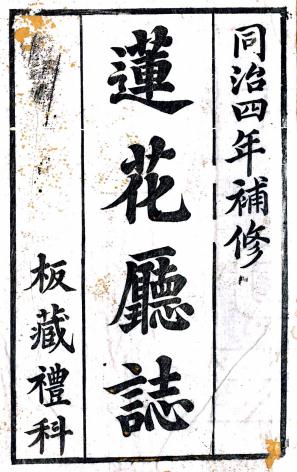 同治四年補修
蓮花廳誌
板藏禮科